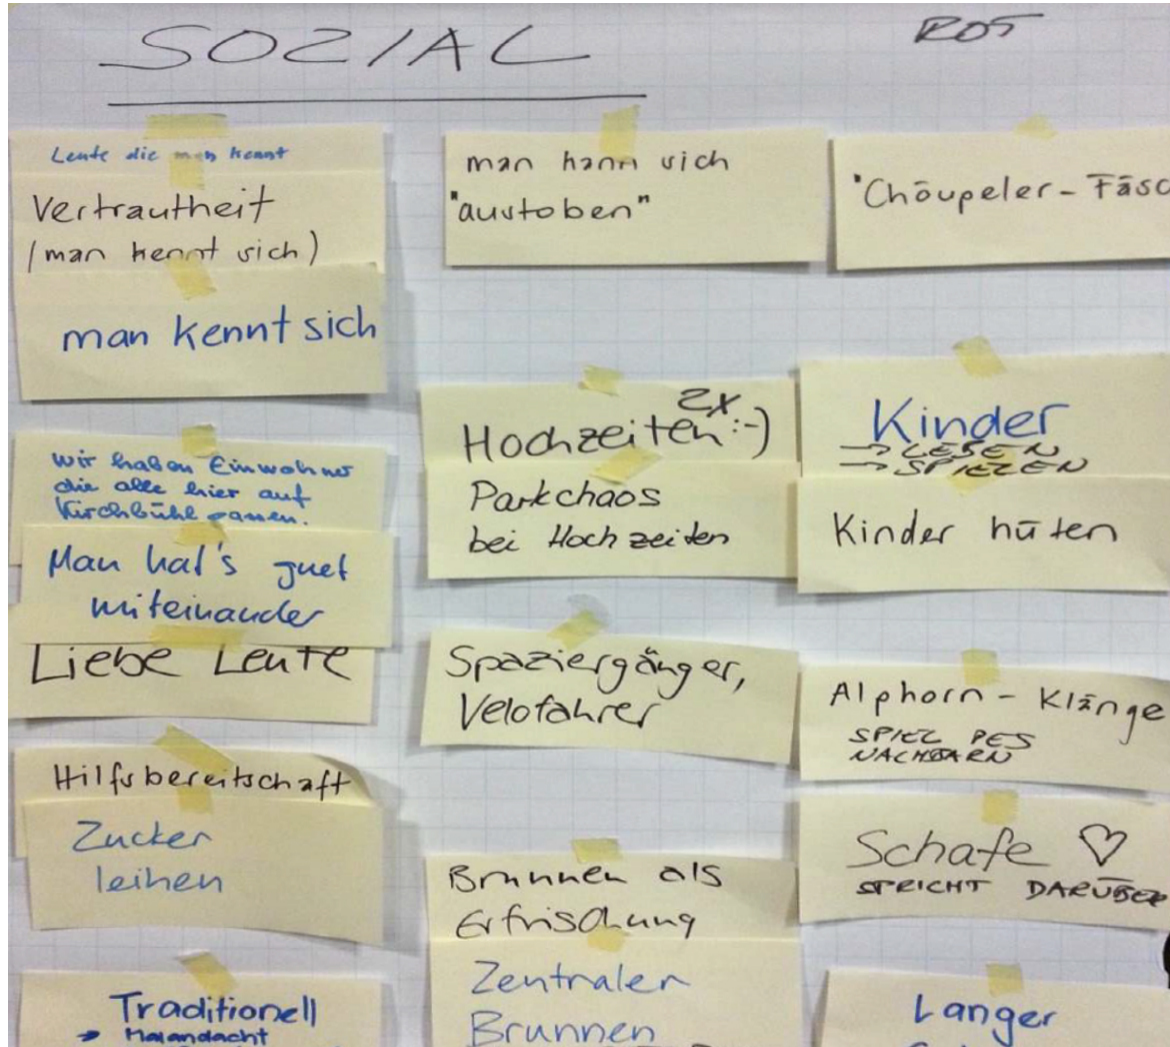 SOZIAL
ROT
Leute die man kennt
Vertrautheit
(man kennt sich)
man kennt sich
wir haben Einwohner
die alle hier auf
Kirchbühl passen.
Man hat's guet
miteinander
Liebe Leute
Hilfsbereitschaft
Zucker
leihen
Traditionell
→ Maiandacht
man kann sich
"austoben"
2x
Hochzeiten :-)
Parkchaos
bei Hochzeiten
Spaziergänger,
Velofahrer
Brunnen als
Erfrischung
Zentraler
Brunnen
"Chöupeler-Fäsc
Kinder
→ LESEN
→ SPIELEN
Kinder hüten
Alphorn-Klänge
SPIEL DES
NACHBARN
Schafe ♡
SPRICHT DARÜBER
Langer